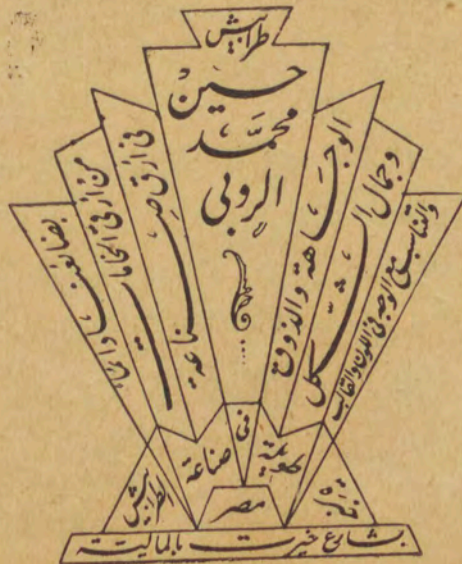 طرابيش
حسين
محمد
الروبي
الوجاهة والذوق
وجمال الشكل
والتناسب مع الوجه في اللون والقالب
في ارقى صناعة
من ارقى الخامات
بضائعنا
في
صناعة
الطرابيش
مصر
بشارع خيرت بالمالية